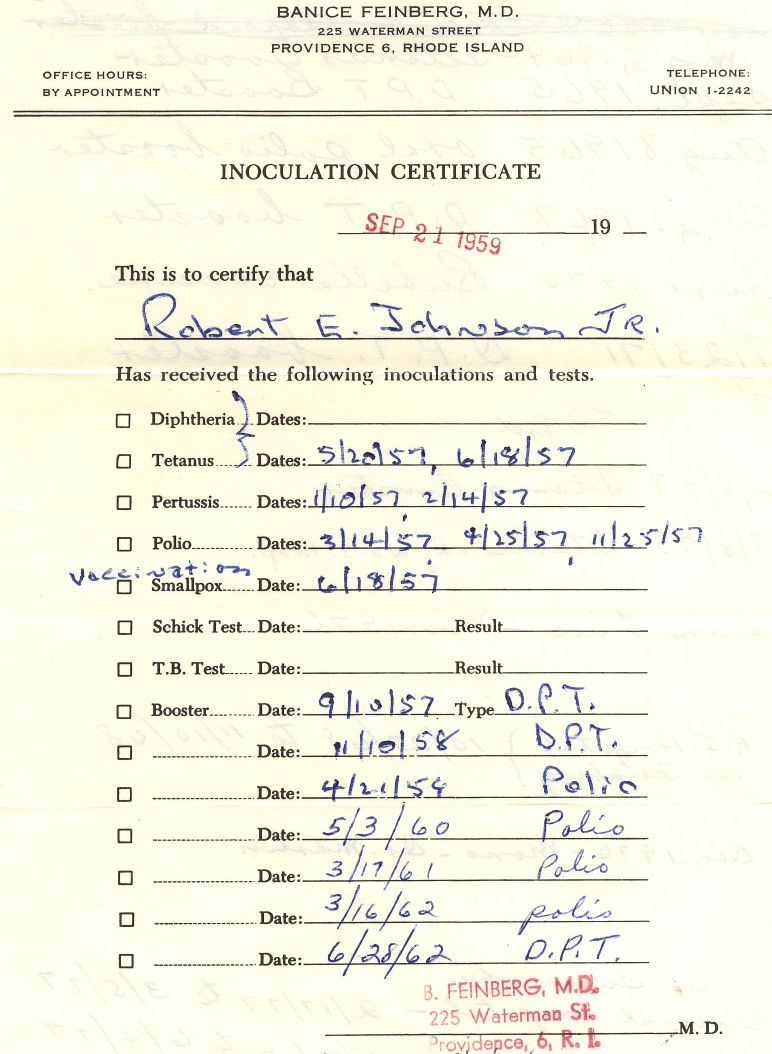 BANICE FEINBERG, M.D.
225 WATERMAN STREET
PROVIDENCE 6, RHODE ISLAND
OFFICE HOURS:
BY APPOINTMENT
TELEPHONE:
UNION 1-2242
INOCULATION CERTIFICATE
SEP 21 1959 19
This is to certify that
Robert E. Johnson JR.
Has received the following inoculations and tests.
Diphtheria } Dates:
Tetanus Dates: 5/20/57, 6/18/57
Pertussis Dates: 1/10/57, 2/14/57
Polio Dates: 3/14/57, 4/25/57, 11/25/57
Vaccination
Smallpox Date: 6/18/57
Schick Test Date: Result
T.B. Test Date: Result
Booster Date: 9/10/57 Type D.P.T.
Date: 11/10/58 D.P.T.
Date: 4/21/59 Polio
Date: 5/3/60 Polio
Date: 3/17/61 Polio
Date: 3/16/62 polio
Date: 6/28/62 D.P.T.
B. FEINBERG, M.D.
225 Waterman St.
Providence, 6, R. I.
M. D.